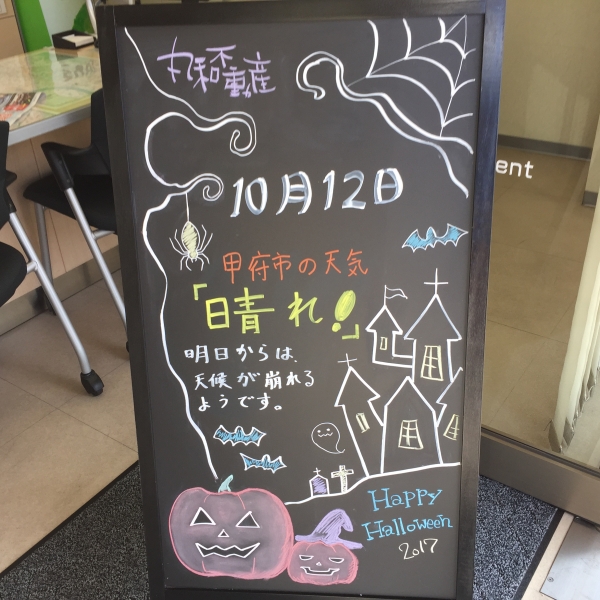 丸和不動産
10月12日
甲府市の天気
「晴れ!」
明日からは、
天候が崩れる
ようです。
Happy
Halloween
2017
ent